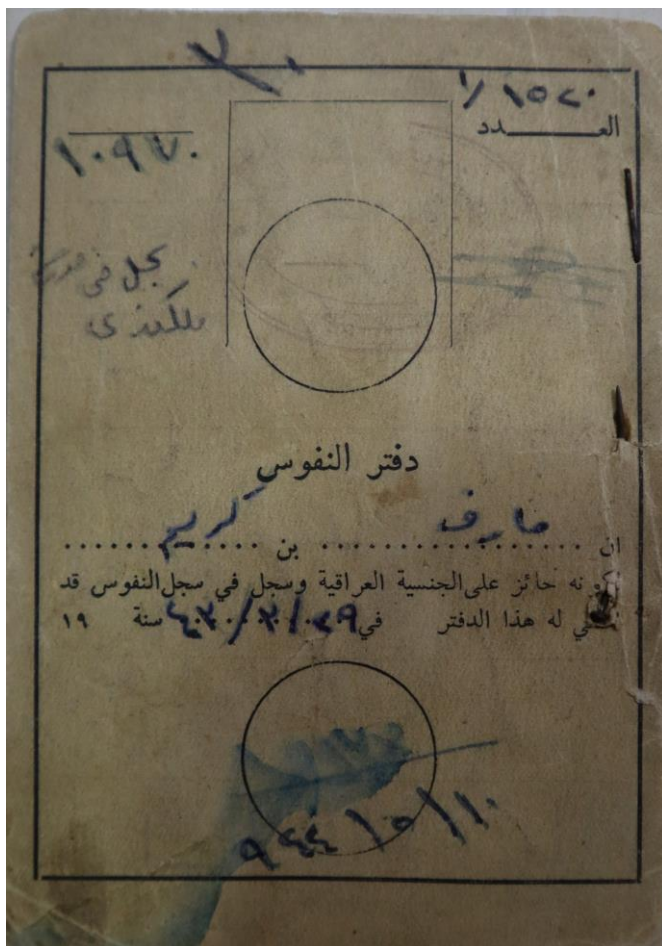 ١٥٢٠ /١
العـــدد
١٠٩٧٠
سجل في
دفتر النفوس
ان عارف بن كريم
نه حائز على الجنسية العراقية وسجل في سجل النفوس قد
له هذا الدفتر في ٢٩/٣/٤٣ سنة ١٩
٩٤٤/٥/١٠